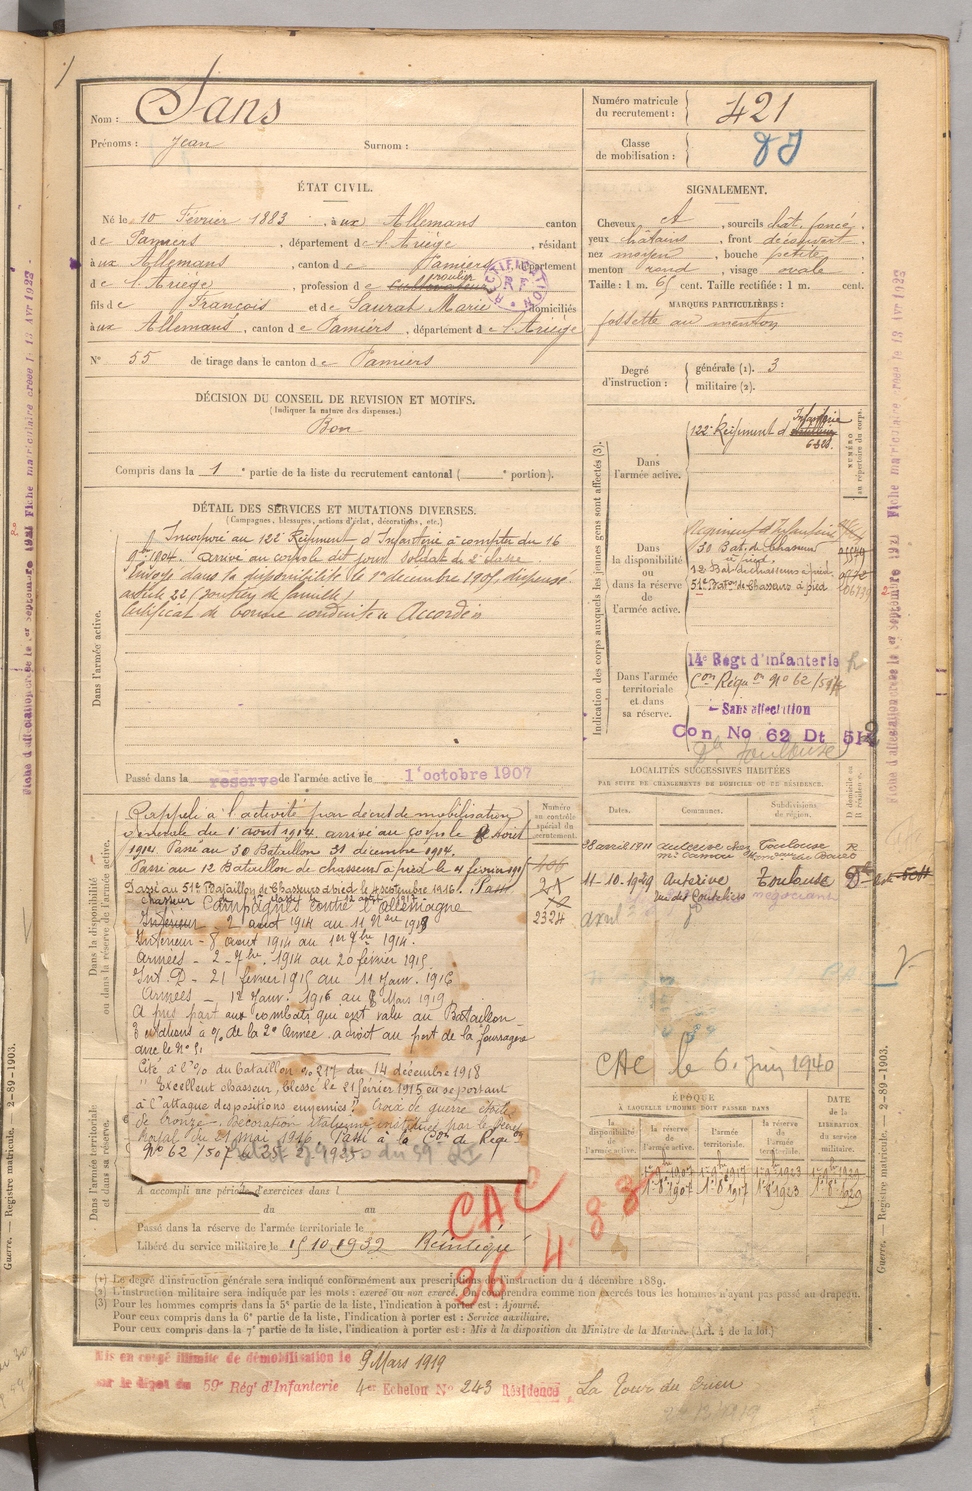 Nom : Sans
Prénoms : Jean Surnom :
Numéro matricule du recrutement : 421
Classe de mobilisation :
ÉTAT CIVIL.
Né le 10 Février 1883, à ux Allemans canton
de Pamiers, département de l'Ariège, résidant
à ux Allemans, canton de Pamiers, département
de l'Ariège, profession de cultivateur roulier
fils de François et de Saurat Marie domiciliés
à ux Allemans, canton de Pamiers, département de l'Ariège
RECTIFICATION RF
N° 55 de tirage dans le canton de Pamiers
SIGNALEMENT.
Cheveux et, sourcils chât. foncé,
yeux châtains, front découvert,
nez moyen, bouche petite,
menton rond, visage ovale
Taille : 1 m. 65 cent. Taille rectifiée : 1 m. cent.
MARQUES PARTICULIÈRES :
fossette au menton
Degré d'instruction : générale (1). 3
militaire (2).
DÉCISION DU CONSEIL DE REVISION ET MOTIFS.
(Indiquer la nature des dispenses.)
Bon
Compris dans la 1e partie de la liste du recrutement cantonal ( e portion).
DÉTAIL DES SERVICES ET MUTATIONS DIVERSES.
(Campagnes, blessures, actions d'éclat, décorations, etc.)
Dans l'armée active.
Incorporé au 122e Régiment d'Infanterie à compter du 16
9bre 1904. Arrivé au corps le dit jour, soldat de 2e classe
Envoyé dans la disponibilité le 1er décembre 1905, dispensé
article 22 (soutien de famille)
Certificat de bonne conduite « Accordé »
Passé dans la réserve de l'armée active le 1 octobre 1907
Indication des corps auxquels les jeunes gens sont affectés (3).
NUMÉRO au répertoire du corps.
Dans l'armée active.
122e Régiment d'Infanterie
Dans la disponibilité ou dans la réserve de l'armée active.
Régiment d'Infanterie
30 Bat. de Chasseurs à pied
12 Bat. de chasseurs à pied
51e Baton de Chasseurs à pied
Dans l'armée territoriale et dans sa réserve.
14e Régt d'infanterie
Con Réquon No 62/
- Sans affectation
Con No 62 Dt 512
Toulouse
LOCALITÉS SUCCESSIVES HABITÉES
PAR SUITE DE CHANGEMENTS DE DOMICILE OU DE RÉSIDENCE.
Dates. Communes. Subdivisions de région. D domicile ou R résidence.
28 avril 1911 Toulouse R
11-10-1929 Auterive Toulouse
rue des Couteliers négociant
CAC le 6 Juin 1940
Dans la disponibilité ou dans la réserve de l'armée active.
Numéro au contrôle spécial du recrutement.
Rappelé à l'activité par décret de mobilisation
générale du 1er août 1914. arrivé au corps le août
1914. Passé au 30 Bataillon 31 décembre 1914.
Passé au 12 Bataillon de chasseurs à pied le 4 février 1915
Passé au 51e Bataillon de Chasseurs à pied le 4 septembre 1916. Passé
chasseur de 1e classe
Campagnes contre l'Allemagne
2324
Intérieur - 2 août 1914 au
Intérieur - 8 août 1914 au 1er 7bre 1914.
Armées - 2 - 7bre 1914 au 20 février 1915
Int. D - 21 février 1915 au 11 Janv. 1916
Armées - 12 Janv. 1916 au 8 Mars 1919
A pris part aux combats qui ont valu au Bataillon
3 citations à l'O/ de la 2e Armée. a droit au port de la fourragère
Cité à l'O/ du bataillon no 217 du 14 décembre 1918
" Excellent chasseur, blessé le 21 février 1915 en se portant
à l'attaque des positions ennemies." Croix de guerre étoile
de bronze. Décoration italienne
Passé à la Con de Réqon
No 62/507
Dans l'armée territoriale et dans sa réserve.
A accompli une période d'exercices dans l
du au
Passé dans la réserve de l'armée territoriale le
Libéré du service militaire le 15.10.1932 Réintégré
CAC
26.4.83
ÉPOQUE À LAQUELLE L'HOMME DOIT PASSER DANS
la disponibilité de l'armée active. la réserve de l'armée active. l'armée territoriale. la réserve de l'armée territoriale. DATE de la LIBÉRATION du service militaire.
1er 8bre 1907 1er 8bre 1917 1er 8bre 1923 1er 8bre 1929
(1) Le degré d'instruction générale sera indiqué conformément aux prescriptions de l'instruction du 4 décembre 1889.
(2) L'instruction militaire sera indiquée par les mots : exercé ou non exercé. On comprendra comme non exercés tous les hommes n'ayant pas passé au drapeau.
(3) Pour les hommes compris dans la 5e partie de la liste, l'indication à porter est : Ajourné.
Pour ceux compris dans la 6e partie de la liste, l'indication à porter est : Service auxiliaire.
Pour ceux compris dans la 7e partie de la liste, l'indication à porter est : Mis à la disposition du Ministre de la Marine (Art. 4 de la loi.)
Mis en congé illimité de démobilisation le 9 Mars 1919
sur le dépôt du 59e Régt d'Infanterie 4e Echelon No 243 Résidence La Tour du Crieu
Guerre. — Registre matricule. 2-89-1903.
Guerre. — Registre matricule. — 2-89-1903.
Fiche d'affectation créée le 1er septembre 1921 Fiche matriculaire créée le 13 Avr 1923